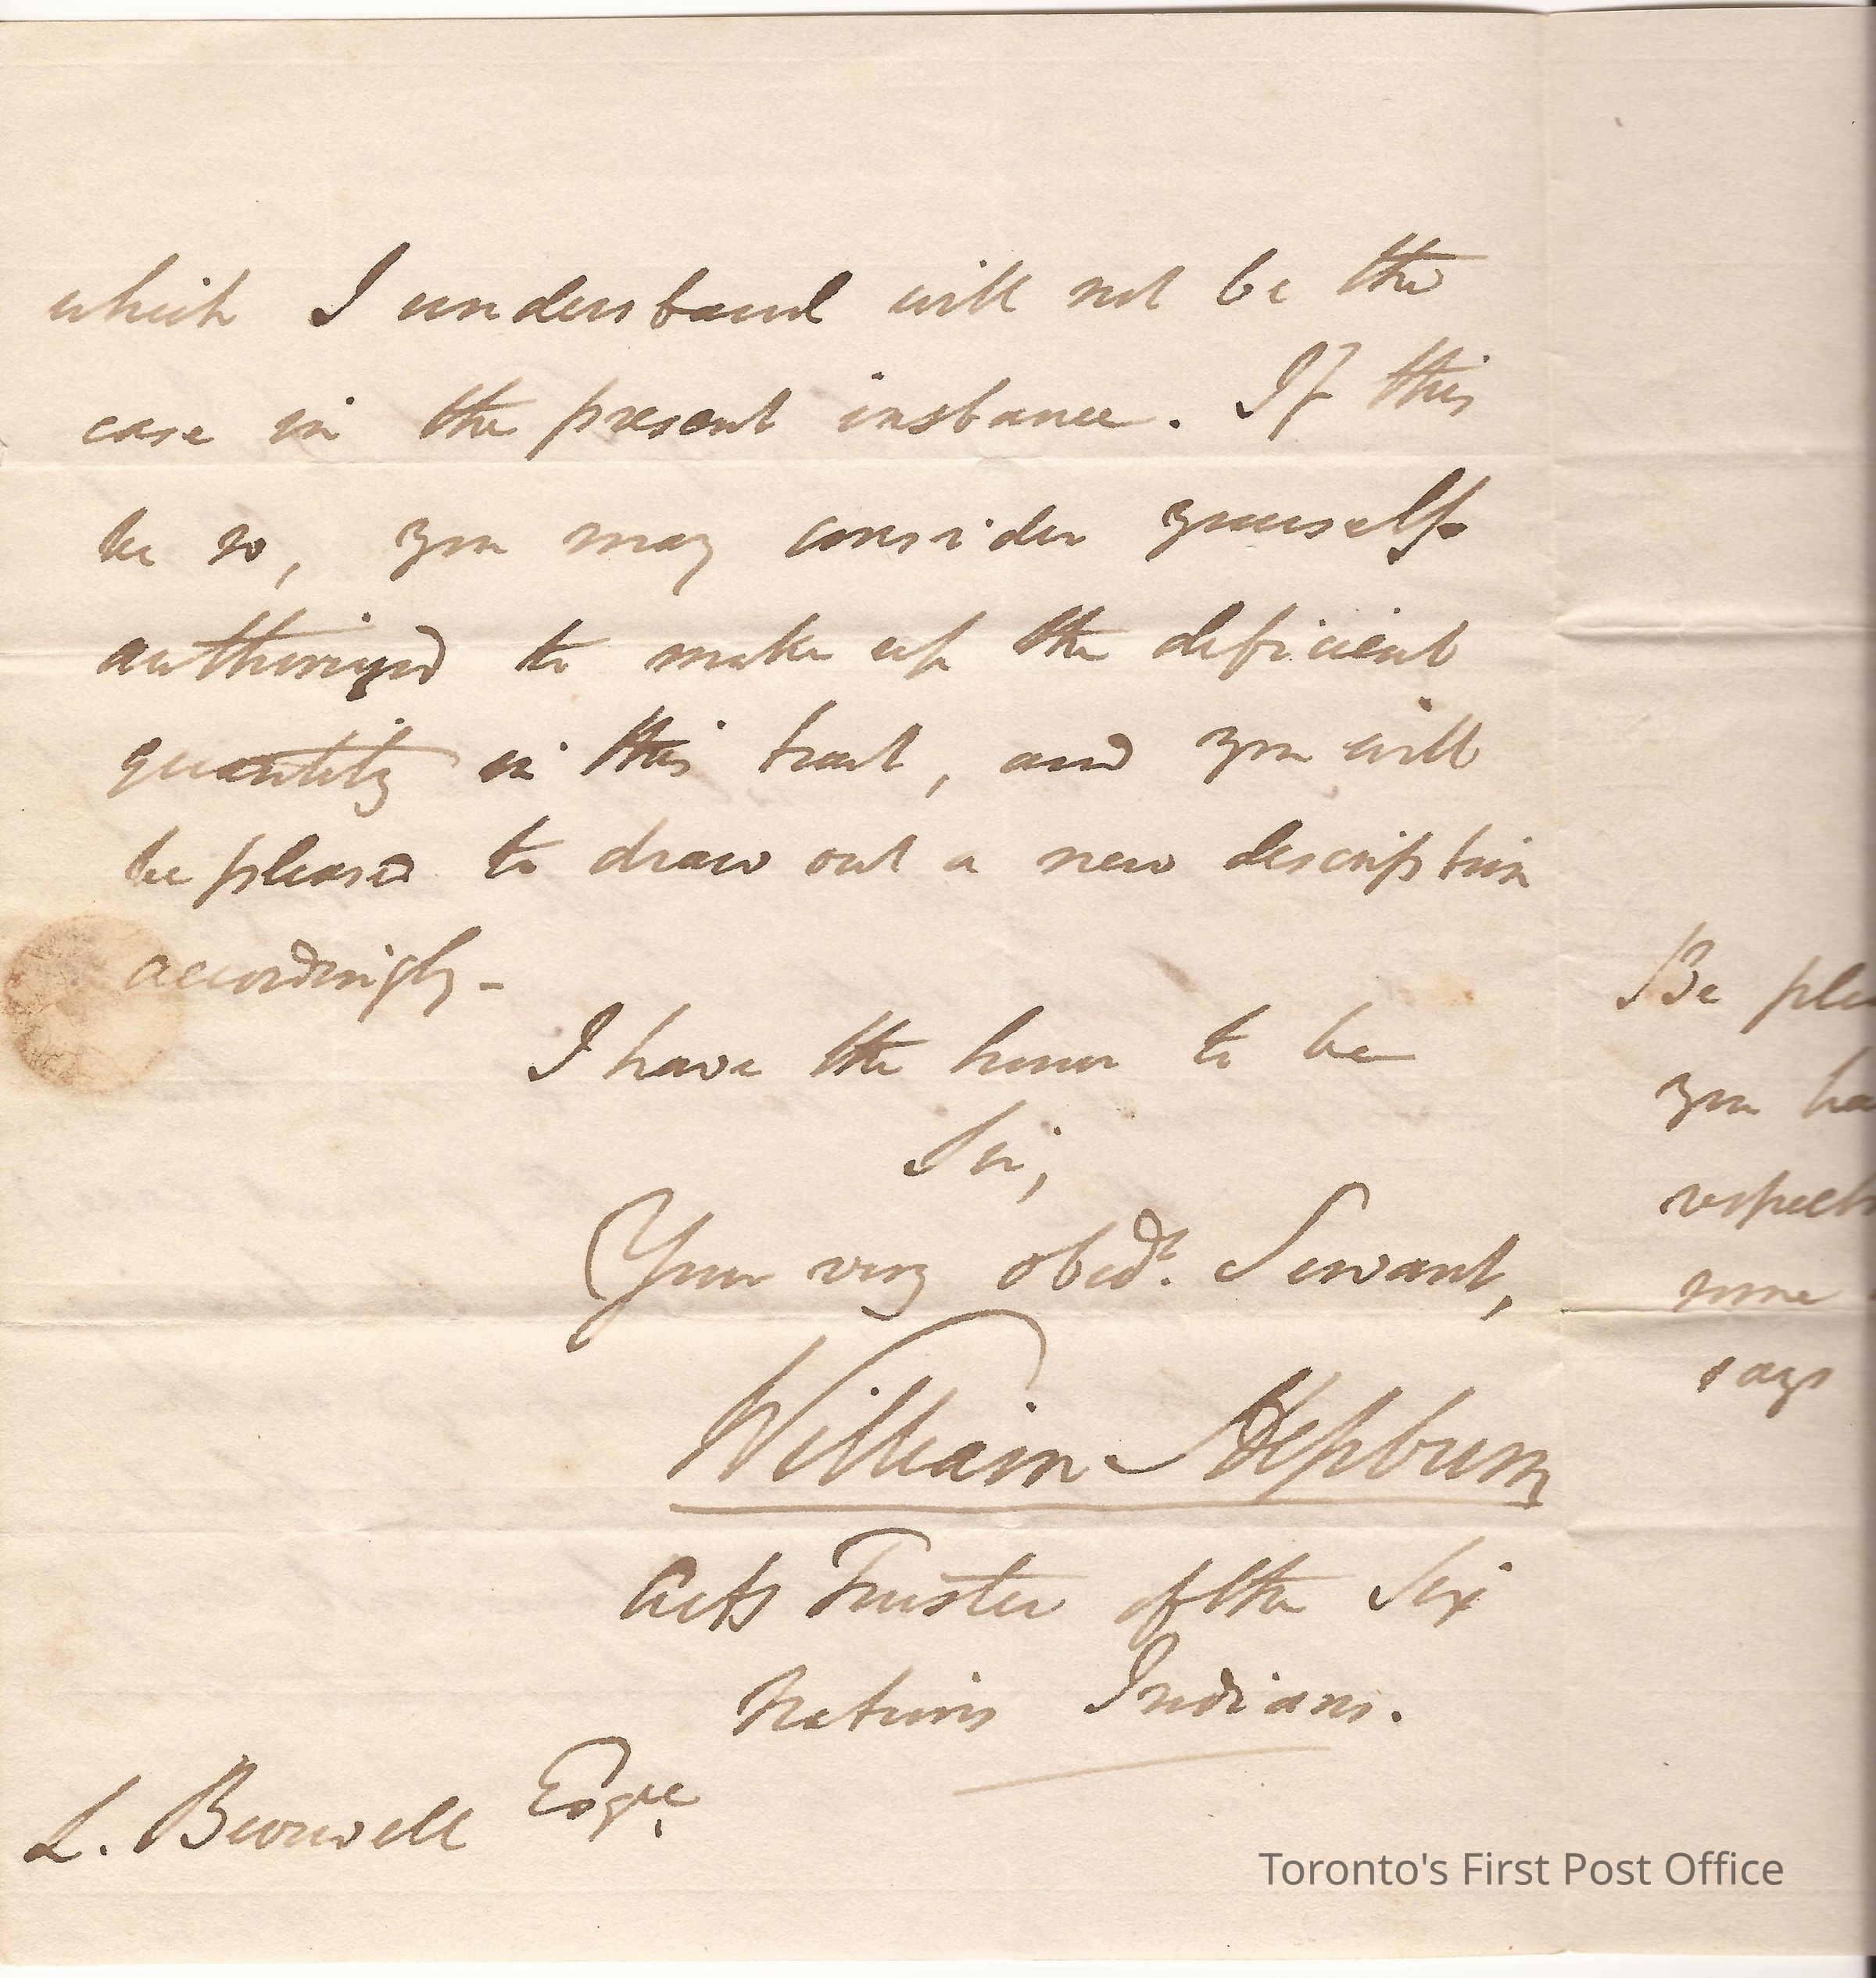 which I understand will not be the
case in the present instance. If this
be so, you may consider yourself
authorized to make up the deficient
quantity in this tract, and you will
be pleased to draw out a new description
accordingly -
I have the honor to be
Sir,
Your very obedt. Servant,
William Hepburn
Trustee of the Six
Nations Indians.
L. Burwell Esqre.
Be
you
says
Toronto's First Post Office